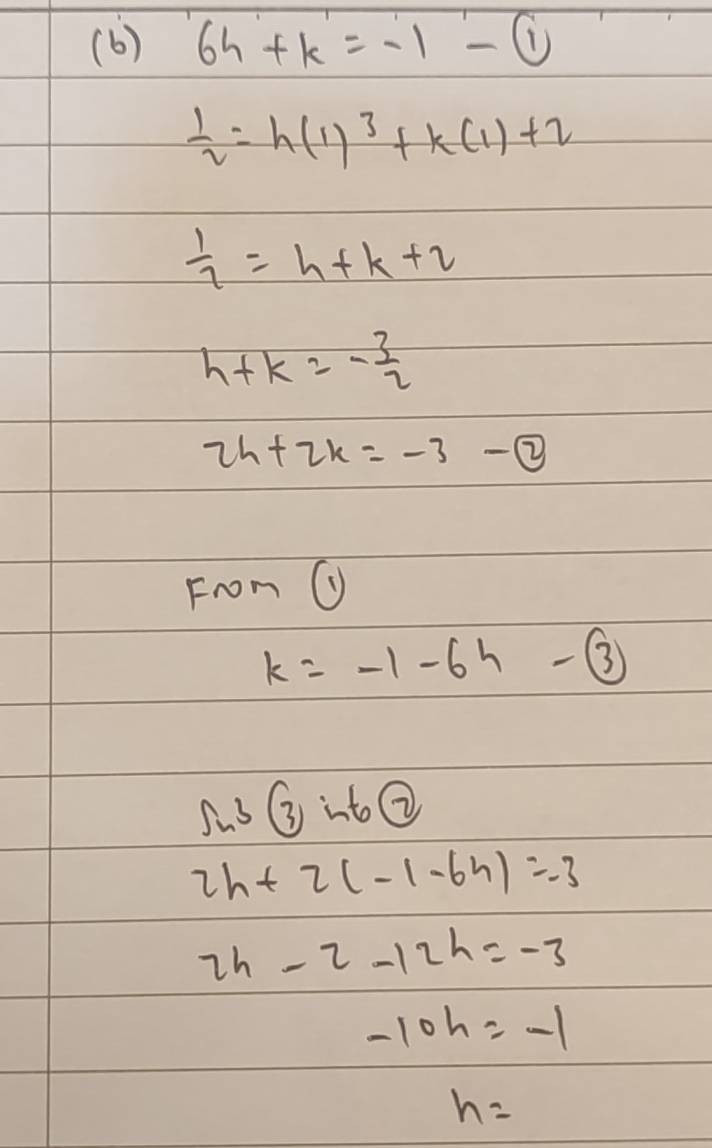 (b) 6h + k = -1 - ①
1/2 = h(1)³ + k(1) + 2
1/2 = h + k + 2
h + k = -3/2
2h + 2k = -3 - ②
From ①
k = -1 - 6h - ③
Sub ③ into ②
2h + 2(-1 - 6h) = -3
2h - 2 - 12h = -3
-10h = -1
h =